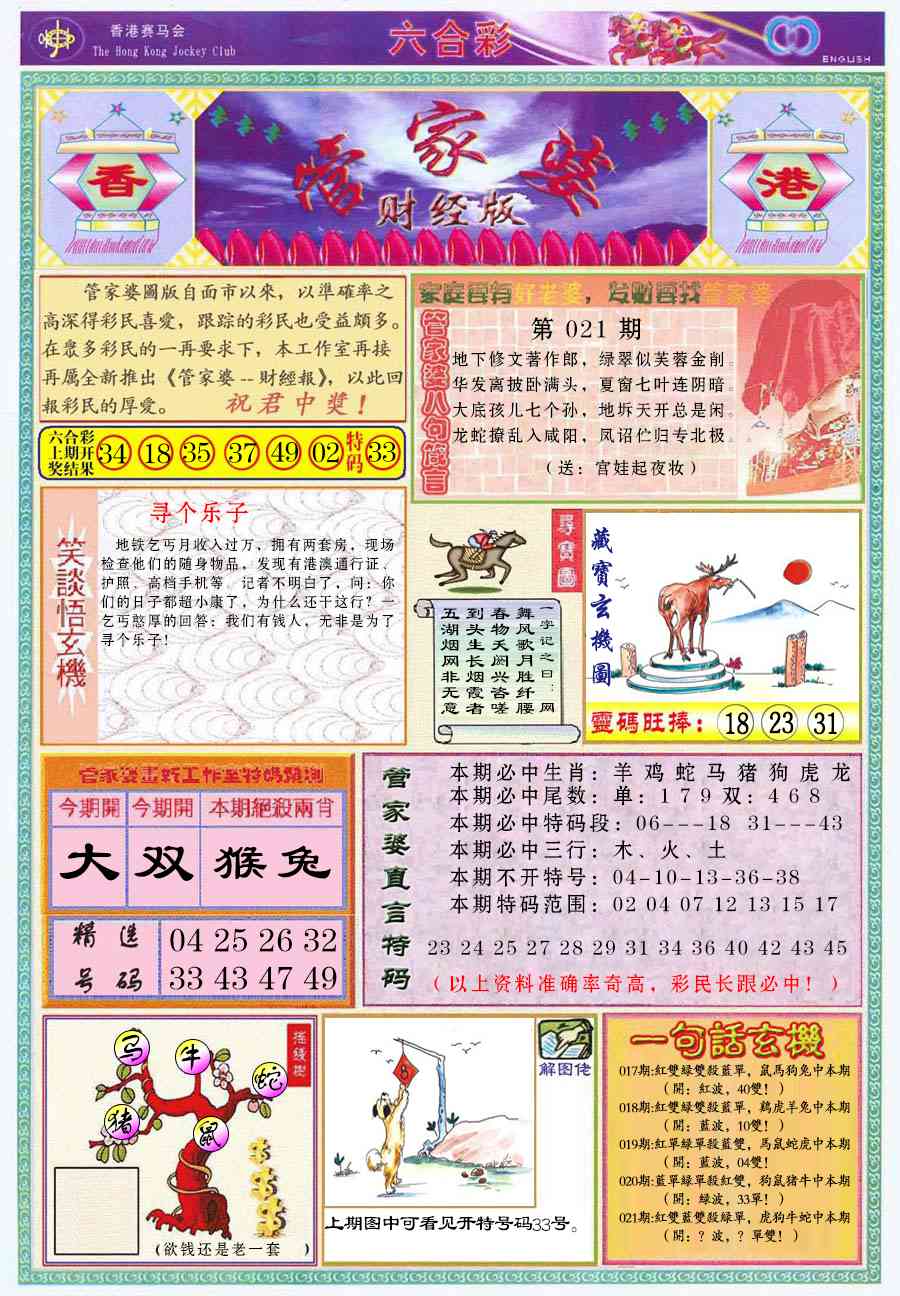 香港赛马会
The Hong Kong Jockey Club
六合彩
ENGLISH
香
管家婆
财经版
港
管家婆圖版自面市以來，以準確率之
高深得彩民喜愛，跟踪的彩民也受益頗多。
在眾多彩民的一再要求下，本工作室再接
再厲全新推出《管家婆--財經報》，以此回
報彩民的厚愛。
祝君中獎！
六合彩
上期开
奖结果
34 18 35 37 49 02
特码
33
家庭要有好老婆，发财要找管家婆
管家婆八句箴言
第 021 期
地下修文著作郎，绿翠似芙蓉金削。
华发离披卧满头，夏窗七叶连阴暗。
大底孩儿七个孙，地坼天开总是闲。
龙蛇撩乱入咸阳，凤诏伫归专北极。
（送：宫娃起夜妆）
笑談悟玄機
寻个乐子
地铁乞丐月收入过万，拥有两套房，现场
检查他们的随身物品，发现有港澳通行证、
护照、高档手机等，记者不明白了，问：你
们的日子都超小康了，为什么还干这行？一
乞丐憨厚的回答：我们有钱人，无非是为了
寻个乐子！
尋寶圖
一字记之曰：网
舞风歌月胜纤腰
春物夭阏兴咨嗟
到头生长烟霞者
五湖烟网非无意
藏寶玄機圖
靈碼旺捧：
18 23 31
管家婆畫新工作室特碼預測
今期開
今期開
本期絕殺兩肖
大
双
猴 兔
精 选
号 码
04 25 26 32
33 43 47 49
管家婆直言特码
本期必中生肖：羊 鸡 蛇 马 猪 狗 虎 龙
本期必中尾数：单：1 7 9 双：4 6 8
本期必中特码段：06---18 31---43
本期必中三行：木、火、土
本期不开特号：04-10-13-36-38
本期特码范围：02 04 07 12 13 15 17
23 24 25 27 28 29 31 34 36 40 42 43 45
（以上资料准确率奇高，彩民长跟必中！）
摇钱樹
马
牛
蛇
猪
鼠
（欲钱还是老一套 ）
解图佬
上期图中可看见开特号码33号。
一句話玄機
017期:紅雙綠雙殺藍單，鼠馬狗兔中本期
（開：紅波，40雙！）
018期:紅雙綠雙殺藍單，鷄虎羊兔中本期
（開：藍波，10雙！）
019期:紅單綠單殺藍雙，馬鼠蛇虎中本期
（開：藍波，04雙！
020期:藍單綠單殺紅雙，狗鼠猪牛中本期
（開：綠波，33單！）
021期:紅雙藍雙殺綠單，虎狗牛蛇中本期
（開：？波，？單雙！）